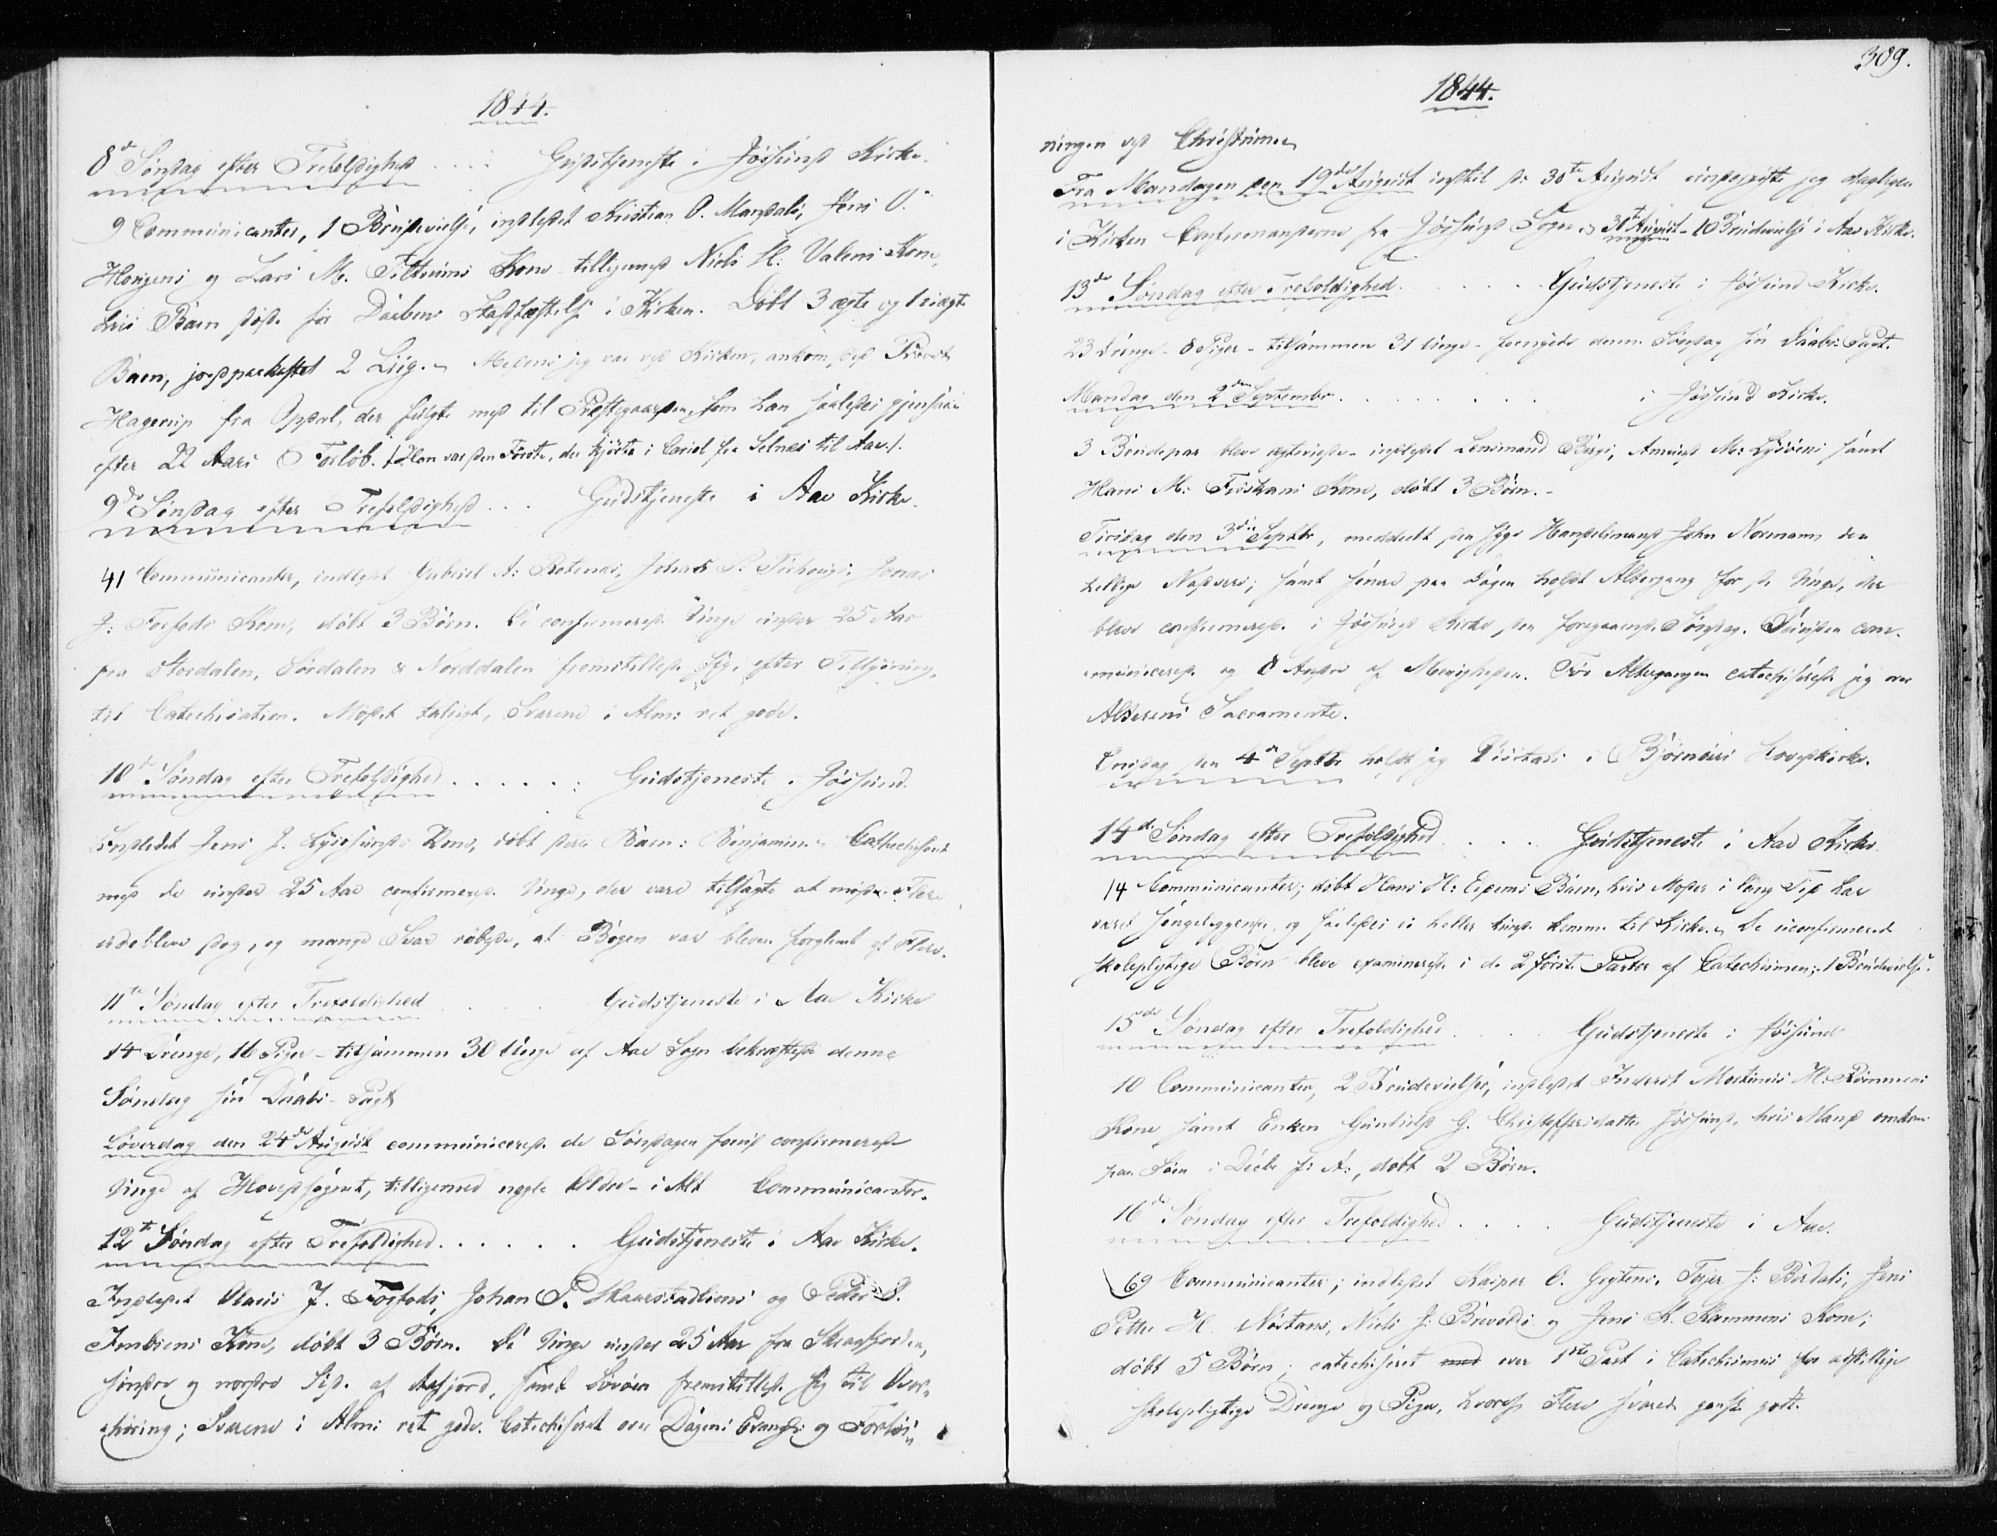 1844.
8de Søndag efter Trefoldighed . . . Gudstjeneste i Jøssund Kirke.
9 Communicanter, 1 Brudevielse, indledet Kristian O. Mandals, Jens O.
Hongens og Lars M. Kone tilligemed Niels H. Valens Kone,
hvis Barn døde før Daabens Stadfæstelse i Kirken. Døbt 3 ægte og 1 uægte
Barn, jordpaakastet 2 Liig. Medens jeg var ved Kirken, ankom Provst
Hagerup fra Opdal, der fulgte med til Præstegaarden, som han saaledes gjensaae
efter 22 Aars Forløb. /: Han var den Første, der kjørte i Cariol fra Selnes til Aae :/.
9de Søndag efter Trefoldighed . . . Gudstjeneste i Aae Kirke.
41 Communicanter, indledet Gabriel A. Rotenas, Johan P. Jonas
J. Kone, døbt 3 Børn. De confirmerede Unge under 25 Aar
fra Stordalen, Sørdalen & Norddalen fremstillede sig efter Tilsigning
til Catechisation. Mødet talrigt, Svarene i Alm: ret gode.
10de Søndag efter Trefoldighed . . . . . . Gudstjeneste i Jøssund.
Indledet Jens J. Kone, døbt deres Barn: Benjamin. Catechiseret
med de under 25 Aar confirmerede Unge, der vare tilsagte at møde. Flere
udebleve dog, og mange Svar røbede, at Bogen var bleven forglemt af Flere.
11te Søndag efter Trefoldighed . . . Gudstjeneste i Aae Kirke
14 Drenge, 16 Piger - tilsammen 30 Unge af Aae Sogn bekræftede denne
Søndag sin Daabs-Pagt
Løverdag den 24de August communicerede de Søndagen forud confirmerede
Unge af Hovedsognet, tilligemed nogle Ældre - i Alt Communicanter.
12te Søndag efter Trefoldighed . . . . . . Gudstjeneste i Aae Kirke.
Indledet Olaus J. Fosfods, Johan P. Skaarstadliens og Peder S.
Kone, døbt 3 Børn. De Unge under 25 Aar fra Skraafjorden,
søndre og nordre Side af Aafjord, samt fremstillede sig til Over-
høring; Svarene i Alm: ret gode. Catechiseret over Dagens Evang: og Forklar-
309.
1844.
ningen ved Christnine
Fra Mandagen den 19de August indtil d: 30te August underviste jeg dagligen
i Kirken Confirmanderne fra Jøssund Sogn. 30te August - 1 Brudevielse i Aae Kirke.
13de Søndag efter Trefoldighed . . . . . . Gudstjeneste i Jøssund Kirke.
23 Drenge - 8 Piger - tilsammen 31 Unge - fornyede denne Søndag sin Daabs Pagt.
Mandag den 2den September . . . . . . . . i Jøssund Kirke.
3 Brudepar bleve ægteviede - indledet Lensmand Bergs, Amund M: samt
Hans M: Kone, døbt 3 Børn. -
Tirsdag den 3die Septbr, meddeelt den syge Handelsmand John Normann den
hellige Nadvere; samt senere paa Dagen holdt Altergang for de Unge, der
bleve confirmerede i Jøssund Kirke den foregaaende Søndag. Desuden com-
municerede og 8 Andre af Menigheden. Før Altergangen catechiserede jeg over
Alterens Sacramente.
Onsdag den 4de Septbr holdt jeg Visitats i Bjørnørs Hovedkirke.
14de Søndag efter Trefoldighed . . . . . Gudstjeneste i Aae Kirke.
14 Communicanter; døbt Hans H: Barn, hvis Moder i lang Tid har
været sengeliggende, og saaledes ei heller kunde komme til Kirke. De uconfirmerede
skolepligtige Børn bleve examinerede i de 2 første Parter af Catechismen; 1 Brudevielse.
15de Søndag efter Trefoldighed . . . . Gudstjeneste i Jøssund
10 Communicanter, 2 Brudevielser, indledet Inderst Mortinus H. Rømmens
Kone samt Enken Gunhild G. Christoffersdatter Jøssund, hvis Mand omkom
paa Søen i Decbr f: A:, døbt 2 Børn.
16de Søndag efter Trefoldighed . . . . Gudstjeneste i Aae.
69 Communicanter; indledet Kasper O. Grytens, J: Jens
Petter H. Niels J: og Jens K. Kammens Kone;
døbt 5 Børn; catechiseret over 1ste Part i Catechismus for adskillige
skolepligtige Drenge og Piger, hvoraf Flere svarede ganske godt.